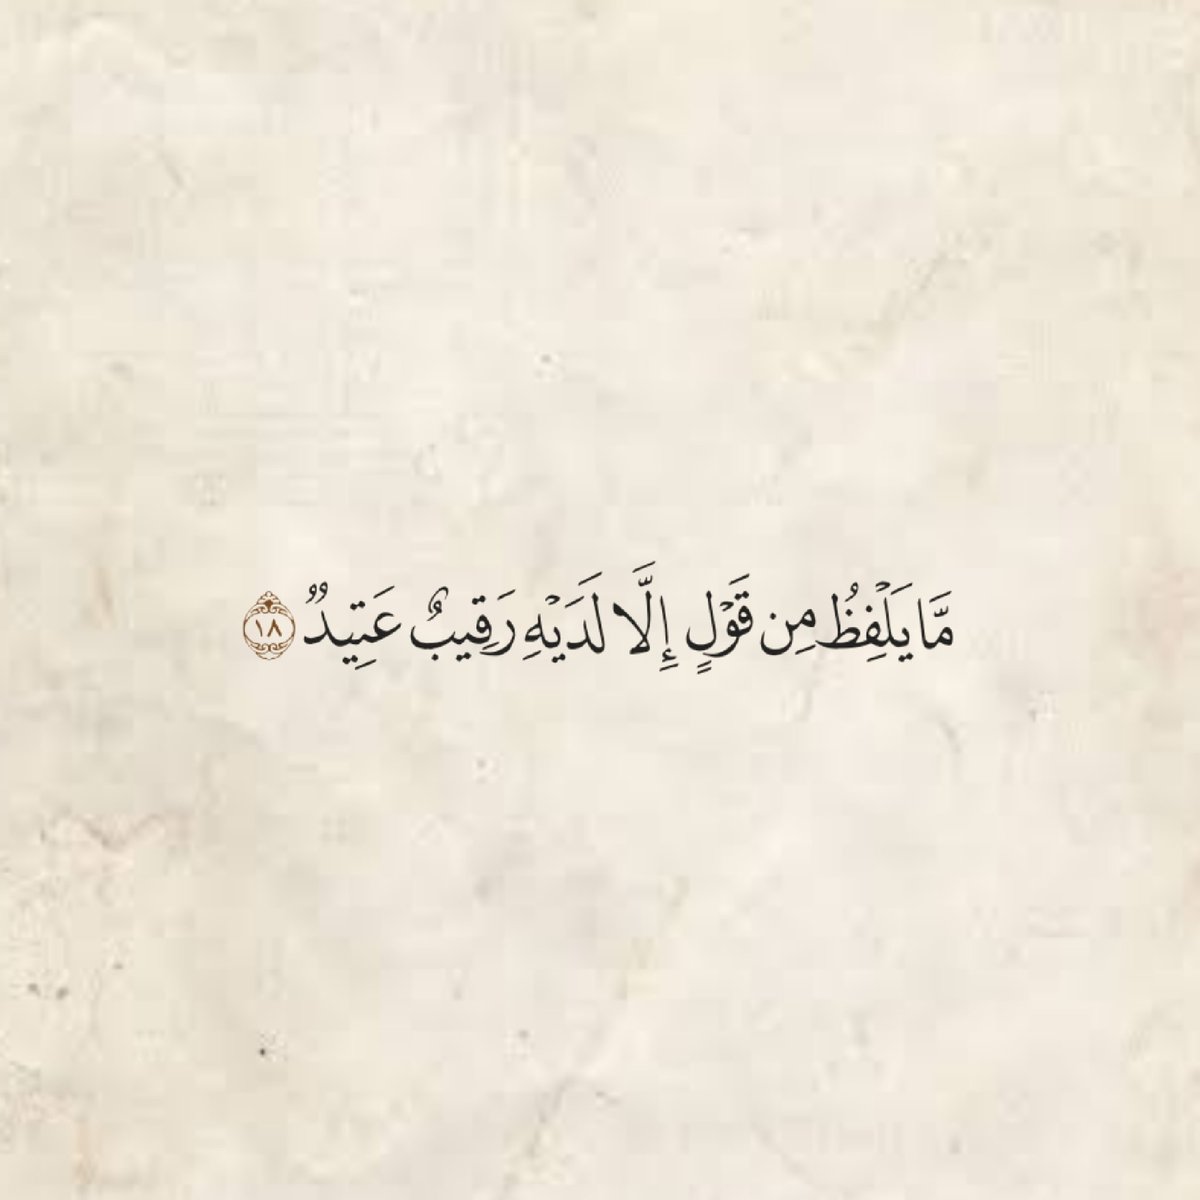 مَّا يَلْفِظُ مِن قَوْلٍ إِلَّا لَدَيْهِ رَقِيبٌ عَتِيدٌ ١٨